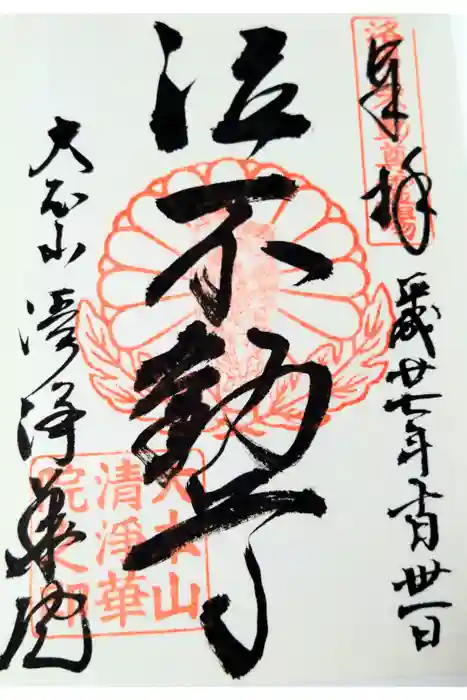 奉拝
平成廿七年十月卅一日
泣不動尊
大本山 清浄華院
大本山
清淨華
院之印